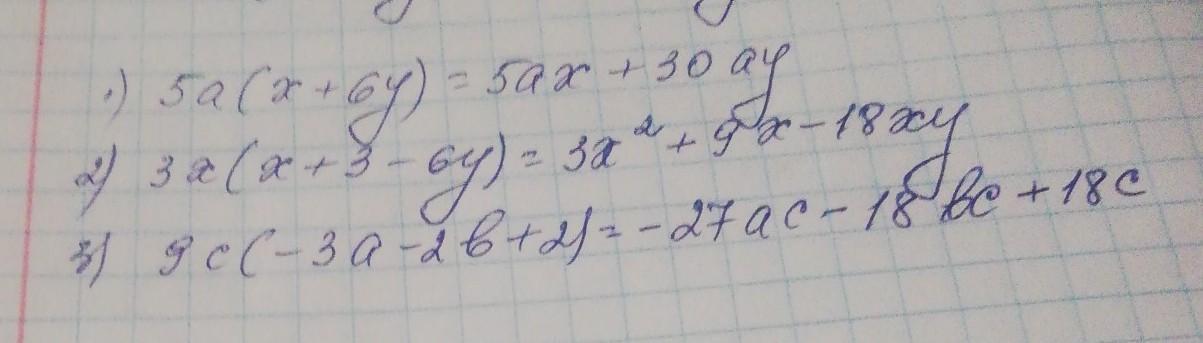 1) 5a(x+6y)=5ax+30ay
2) 3x(x+3-6y)=3x²+9x-18xy
3) 9c(-3a-2b+2)=-27ac-18bc+18c